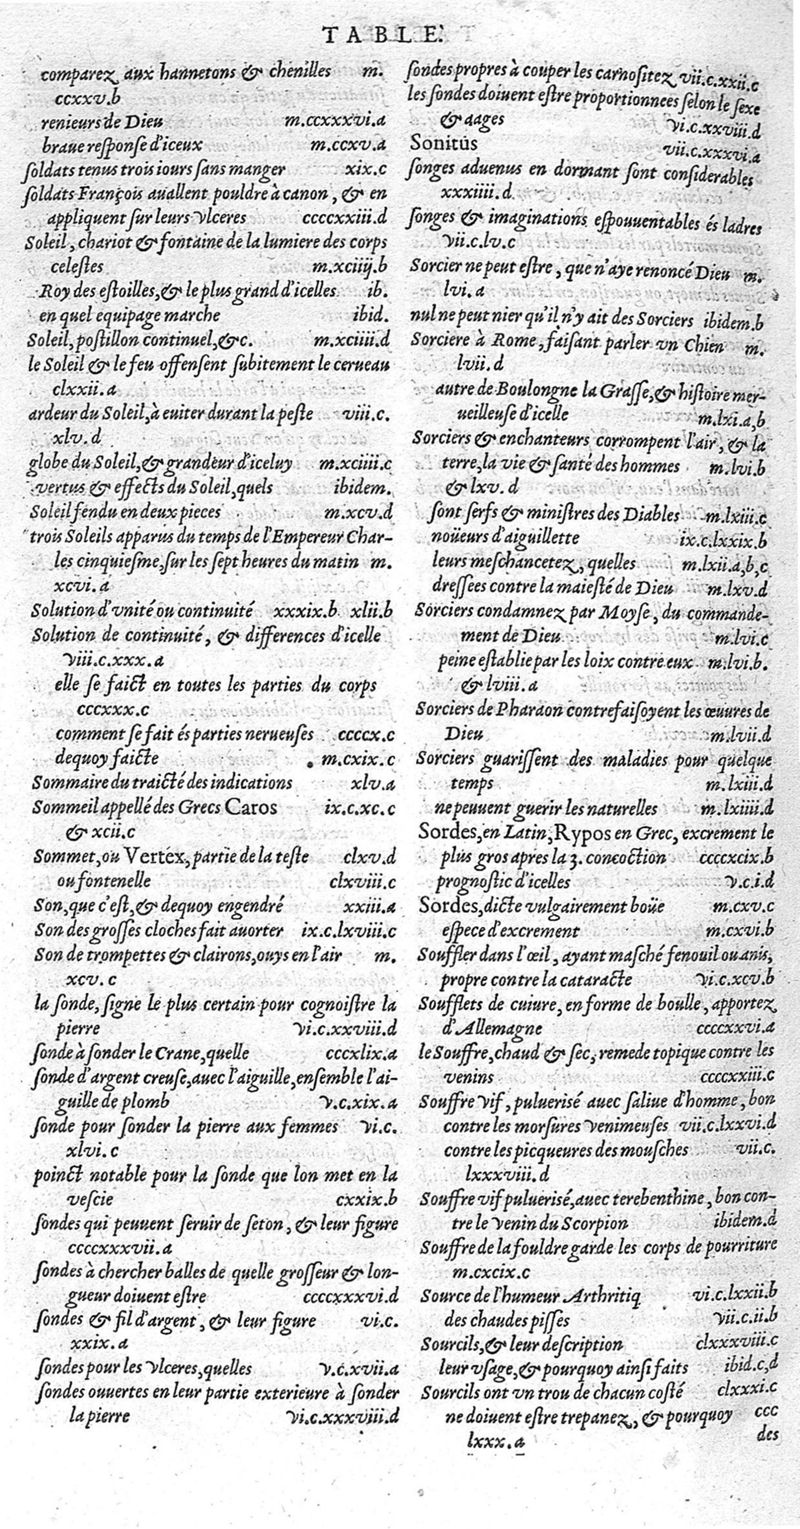 TABLE.
comparez aux hannetons & chenilles m.
ccxxv.b
renieurs de Dieu m.ccxxxvi.a
braue response d'iceux m.ccxv.a
soldats tenus trois iours sans manger xix.c
soldats François auallent pouldre à canon, & en
appliquent sur leurs vlceres ccccxxiii.d
Soleil, chariot & fontaine de la lumiere des corps
celestes m.xciiij.b
Roy des estoilles, & le plus grand d'icelles ib.
en quel equipage marche ibid.
Soleil, postillon continuel, &c. m.xciiii.d
le Soleil & le feu offensent subitement le cerueau
clxxii.a
ardeur du Soleil, à euiter durant la peste viii.c.
xlv.d
globe du Soleil, & grandeur d'iceluy m.xciiii.c
vertus & effects du Soleil, quels ibidem.
Soleil fendu en deux pieces m.xcv.d
trois Soleils apparus du temps de l'Empereur Char-
les cinquiesme, sur les sept heures du matin m.
xcvi.a
Solution d'vnité ou continuité xxxix.b xlii.b
Solution de continuité, & differences d'icelle
viii.c.xxx.a
elle se faict en toutes les parties du corps
cccxxx.c
comment se fait és parties nerueuses ccccx.c
dequoy faicte m.cxix.c
Sommaire du traicté des indications xlv.a
Sommeil appellé des Grecs Caros ix.c.xc.c
& xcii.c
Sommet, ou Vertex, partie de la teste clxv.d
ou fontenelle clxviii.c
Son, que c'est, & dequoy engendré xxiii.a
Son des grosses cloches fait auorter ix.c.lxviii.c
Son de trompettes & clairons, ouys en l'air m.
xcv.c
la sonde, signe le plus certain pour cognoistre la
pierre vi.c.xxviii.d
sonde à sonder le Crane, quelle cccxlix.a
sonde d'argent creuse, auec l'aiguille, ensemble l'ai-
guille de plomb v.c.xix.a
sonde pour sonder la pierre aux femmes vi.c.
xlvi.c
poinct notable pour la sonde que lon met en la
vescie cxxix.b
sondes qui peuuent seruir de seton, & leur figure
ccccxxxvii.a
sondes à chercher balles de quelle grosseur & lon-
gueur doiuent estre ccccxxxvi.d
sondes & fil d'argent, & leur figure vi.c.
xxix.a
sondes pour les vlceres, quelles v.c.xvii.a
sondes ouuertes en leur partie exterieure à sonder
la pierre vi.c.xxxviii.d
sondes propres à couper les carnositez vii.c.xxii.c
les sondes doiuent estre proportionnees selon le sexe
& aages vi.c.xxviii.d
Sonitus vii.c.xxxvi.a
songes aduenus en dormant sont considerables
xxxiiii.d
songes & imaginations espouuentables és ladres
vii.c.lv.c
Sorcier ne peut estre, que n'aye renoncé Dieu m.
lvi.a
nul ne peut nier qu'il n'y ait des Sorciers ibidem.b
Sorciere à Rome, faisant parler vn Chien m.
lvii.d
autre de Boulongne la Grasse, & histoire mer-
ueilleuse d'icelle m.lxi.a,b
Sorciers & enchanteurs corrompent l'air, & la
terre, la vie & santé des hommes m.lvi.b
& lxv.d
sont serfs & ministres des Diables m.lxiii.c
noüeurs d'aiguillette ix.c.lxxix.b
leurs meschancetez, quelles m.lxii.a,b,c
dressees contre la maiesté de Dieu m.lxv.d
Sorciers condamnez par Moyse, du commande-
ment de Dieu m.lvi.c
peine establie par les loix contre eux m.lvi.b.
& lviii.a
Sorciers de Pharaon contrefaisoyent les œuures de
Dieu m.lvii.d
Sorciers guarissent des maladies pour quelque
temps m.lxiii.d
ne peuuent guerir les naturelles m.lxiiii.d
Sordes, en Latin, Rypos en Grec, excrement le
plus gros apres la 3. concoction ccccxcix.b
prognostic d'icelles v.c.i.d
Sordes, dicte vulgairement boüe m.cxv.c
espece d'excrement m.cxvi.b
Souffler dans l'œil, ayant masché fenouil ou anis,
propre contre la cataracte vi.c.xcv.b
Soufflets de cuiure, en forme de boulle, apportez
d'Allemagne ccccxxvi.a
le Souffre, chaud & sec, remede topique contre les
venins ccccxxiii.c
Souffre vif, puluerisé auec saliue d'homme, bon
contre les morsures venimeuses vii.c.lxxvi.d
contre les picqueures des mousches vii.c.
lxxxviii.d
Souffre vif puluerisé, auec terebenthine, bon con-
tre le venin du Scorpion ibidem.d
Souffre de la fouldre garde les corps de pourriture
m.cxcix.c
Source de l'humeur Arthritiq vi.c.lxxii.b
des chaudes pisses vii.c.ii.b
Sourcils, & leur description clxxxviii.c
leur vsage, & pourquoy ainsi faits ibid.c,d
Sourcils ont vn trou de chacun costé clxxxi.c
ne doiuent estre trepanez, & pourquoy ccc
lxxx.a
des